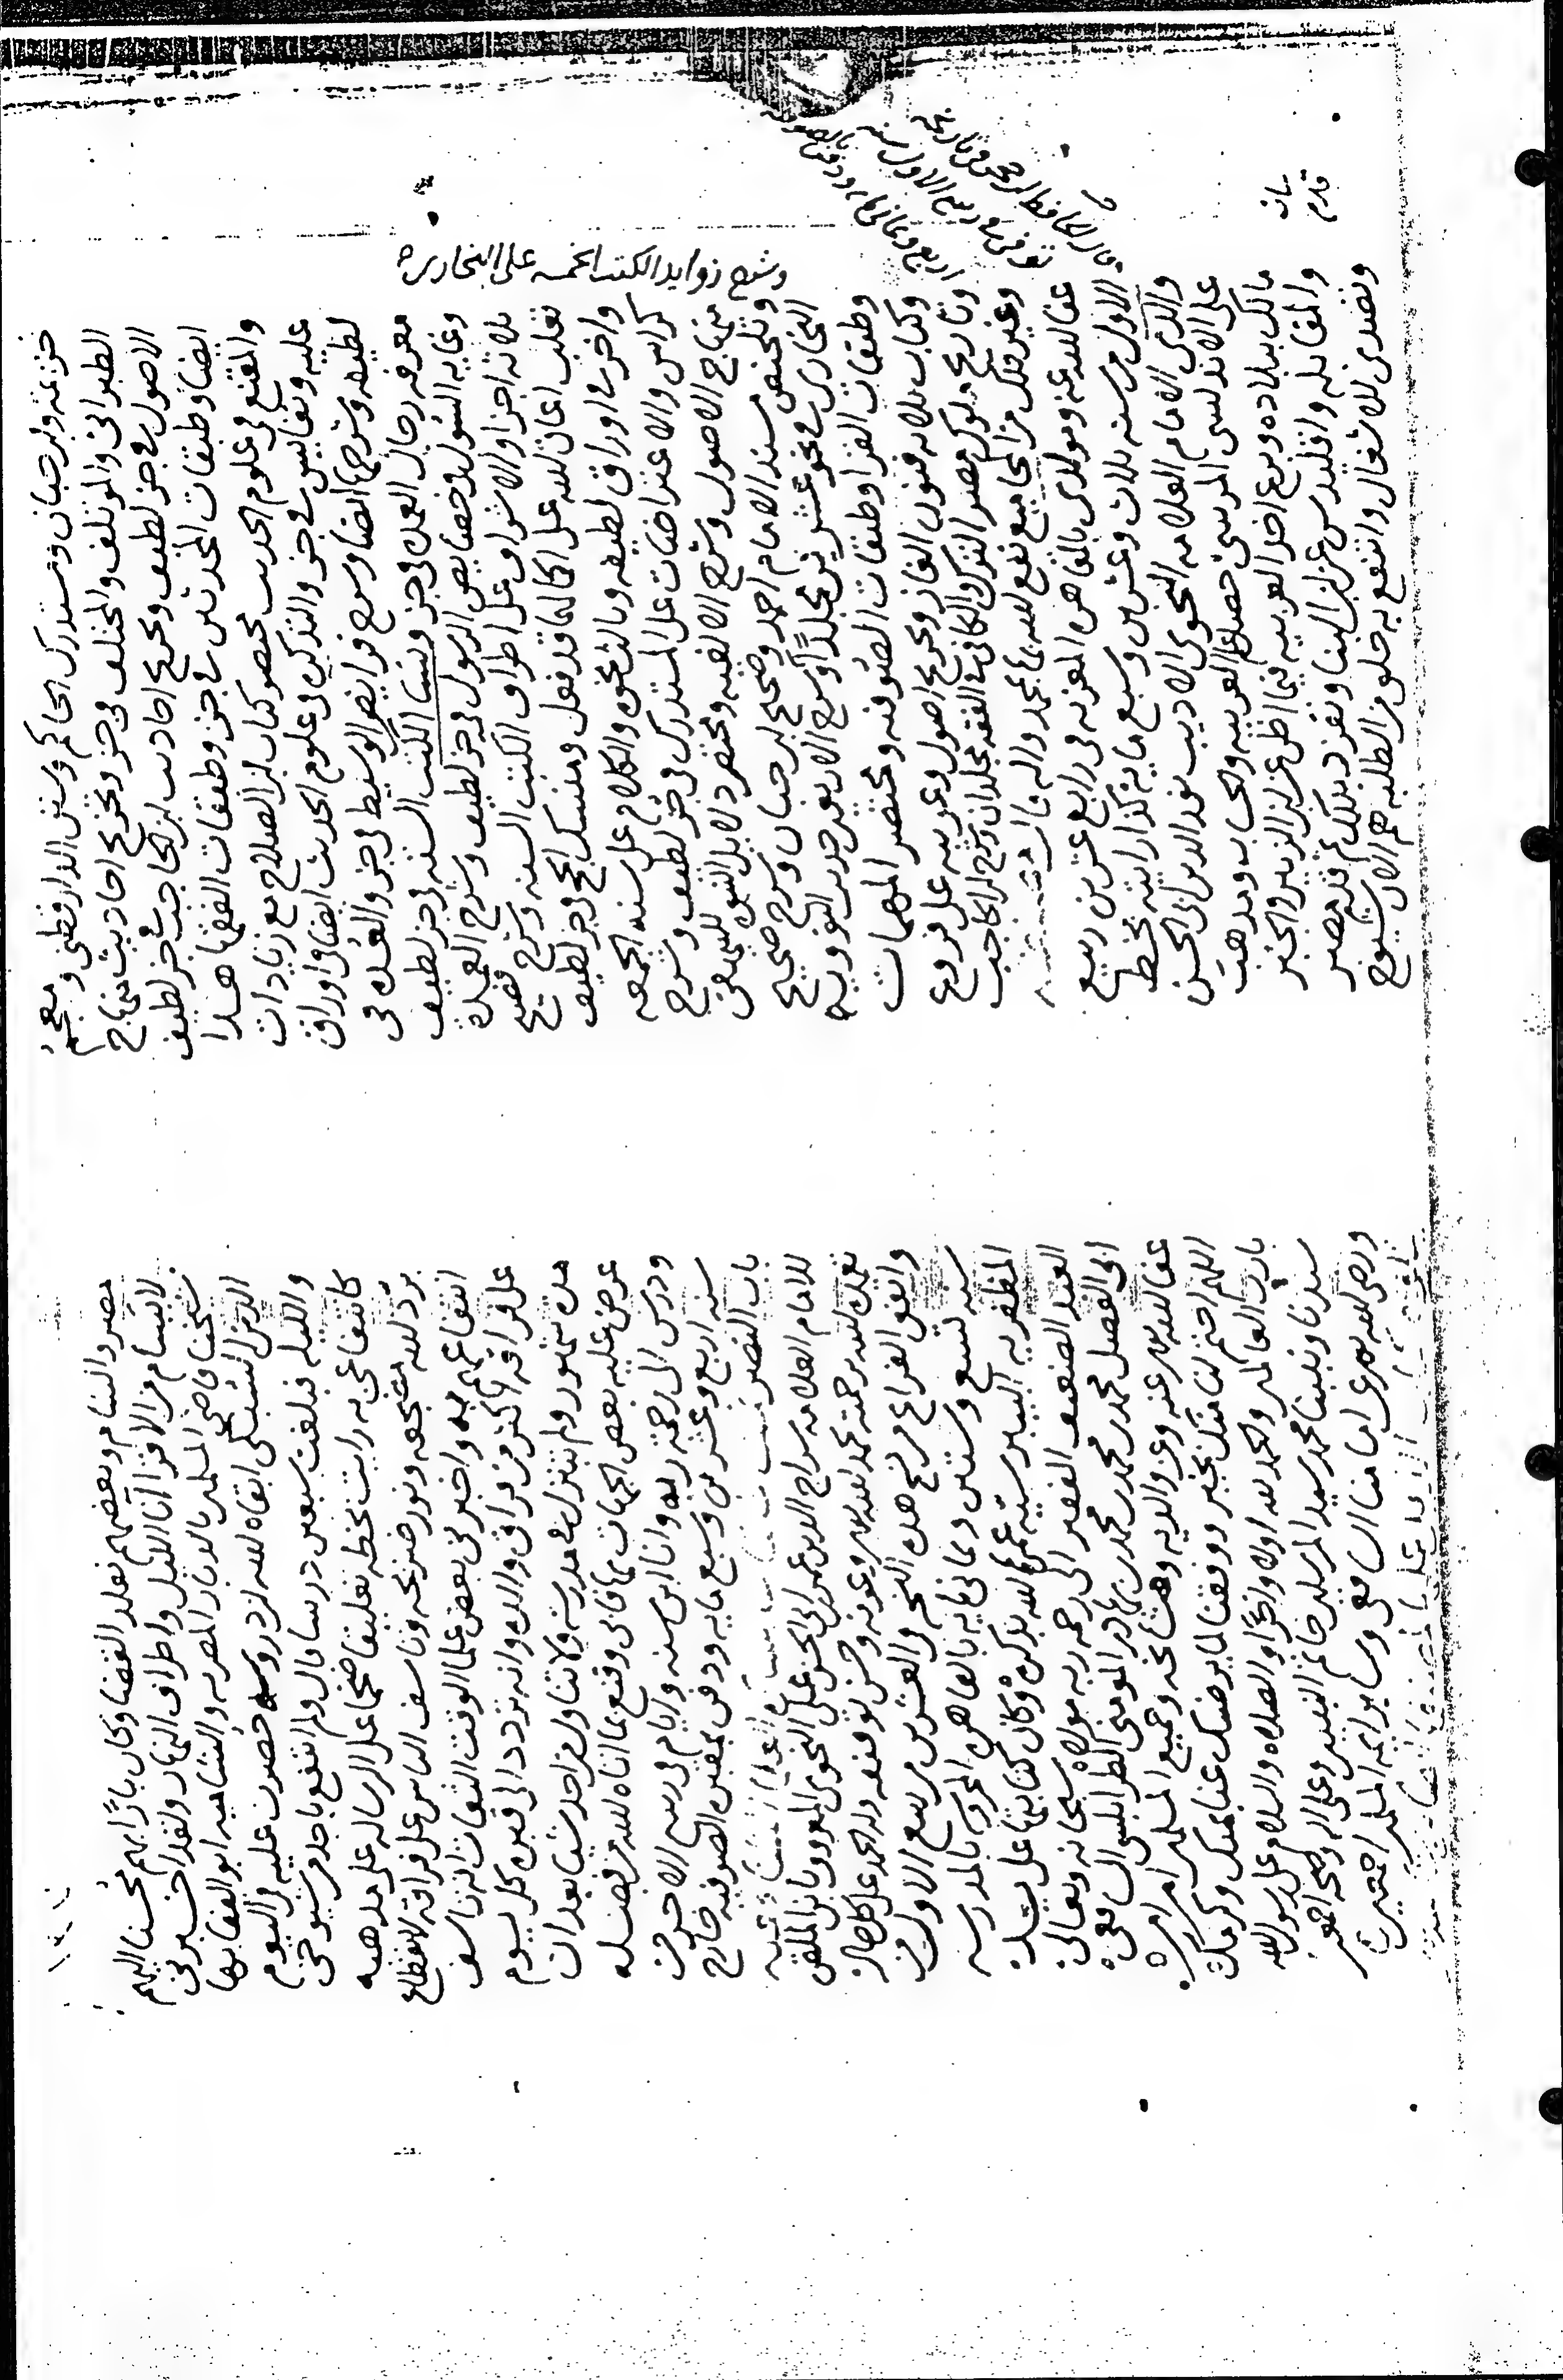 خزيمه وابن حبان ومستدرك الحاكم وسنن الدارقطني ومعجم
الطبراني والموتلف والمختلف في جز وتخريج احاديث منهاج
الاصول في جز لطيف وتخريج احاديث ابن الحاجب في جز لطيف
ايضا وطبقات المحدثين في جز وطبقات الفقها هذا
والمقنع في علوم الحديث مختصر كتاب ابن الصلاح مع زيادات
عليه ونفايس في جز والتذكره في علوم الحديث ايضا في اوراق
لطيفه وشرحها ايضا وشرح فرايض الوسيط في جز والعده في
معرفه رجال العمده في جز ونسا الكتب السته في جز لطيف
وغايه السول في خصايص الرسول في جز لطيف وشرح العمدة
ثلاثه اجزا والاشراف على اطراف الكتب السته وشرح فصيح
ثعلب اعان الله على اكمالها قد فعل ومنسك الحج في جز لطيف
واخر في اوراق لطيفه وبالذي نحوه والكلام على سنه الجمعه
كراس والاعتراضات على المستدرك في جز لطيف وشرح
منهاج الاصول وشرح الالفيه ومختصر دلايل النبوه للبيهقي
وتلخيص مسند الامام احمد وصحيح ابن حبان وشرح صحيح
البخاري في نحو عشرين مجلدا وشرح الاربعين حديث النوويه
وطبقات القرا وطبقات الصوفيه ومختصر المهمات
وكتاب ثلاثه فنون الغاز وتخريج اصول وعربيه على فروع
وتاريخ ملوك مصر الترك والكافي في الفقه مجلدان وشرح ابن الحاجب
وغير ذلك من المجاميع نفع الله بها بمحمد واله
عفا الله عنه ومولدي بالقاهره المعزيه في رابع عشرين ربيع
الاول من سنه ثلاث وعشرين وسبع مايه كذا رايته بخط
والدي الامام العلامه النحوي الاديب نور الدين ابي الحسن
علي الاندلسي المرسي حصل العربيه والحساب ومذهب
مالك ببلاده وبرع اخر العربيه فيما اظن عن ابن الزبير والجبر
والمقابله واقليدس عن ابن البنا وتفرد بذلك ثم قدم مصر
وتصدى للاشغال وانتفع به خلق من الطلبه هم الان شيوخ
وشرح زوايد الكتب الخمسه على البخاري
مصر والشام وبعضهم تقلد القضا وكان بارا بهم محسنا اليهم
لا يسام من الاقرا انا الليل واطراف النهار ولقد اخبرني
شيخنا قاضي المسلمين بالديار المصريه والشاميه ابو البقا بها
الدين السبكي ابقاه الله ان دروسه حصرت عليه في اليوم
والليله فبلغت سبعين درسا قال ولم انتفع باحد من شيوخي
كانتفاعي به رايت بخطه تعليقا ضخما على الرساله على مذهبه
برد الله مضجعه ونور ضريحه وتاسف الناس على فراقه لانقطاع
انتفاعهم به واخبرني بعض علما الوقت الثقات انه تاسف
على فراقه اكثر من فراق والده وانه تردد الى قبره كل يوم
مده شهور ولم يتنزل في مدرسه ولا تناول من احد شيا بعد ان
عرض عليه بعض الجهات بها فابى وقنع بما اتاه الله من فضله
ودرس الى رحمه ربه وانا ابن سنه وايام في ربيع الاخر من
سنه اربع وعشرين وسبع مايه ودفن بمقبره الصوفيه خارج
باب النصر
للامام العلامه سراج الدين عمر ابن ابي الحسن علي النحوي المعروف بابن الملقن
تغمده الله برحمته بحمد الله وعونه وحسن توفيقه وله الحمد على كل حال
واتفق الفراغ من نسخ هذه النسخه في العشرين من ربيع الاول من
سنه تسع وستين وثماني مايه بالقاهره المحروسه بالمدرسه
المظفريه البيبرسيه عمرها الله بذكره وكان كتابتها على يد
العبد الضعيف الفقير الى رحمه ربه مولاه سبحانه وتعالى
ابي الفضل محمد بن محمد بن محمد بن بهادر المومني الطرابلسي الشافعي
عفا الله عنه وعن والديه ومشايخه وجميع المسلمين امين
اللهم اختم لنا منك بخير ووفقنا لما يرضيك عنا بمنك وكرمك
يا رب العالمين والحمد لله اولا واخرا والصلاه والسلام على رسول الله
سيدنا ونبينا محمد سيد المرسلين خاتم النبيين وعلى اله وصحبه اجمعين
ورضي الله عن امامنا الشافعي وساير ايمه المسلمين